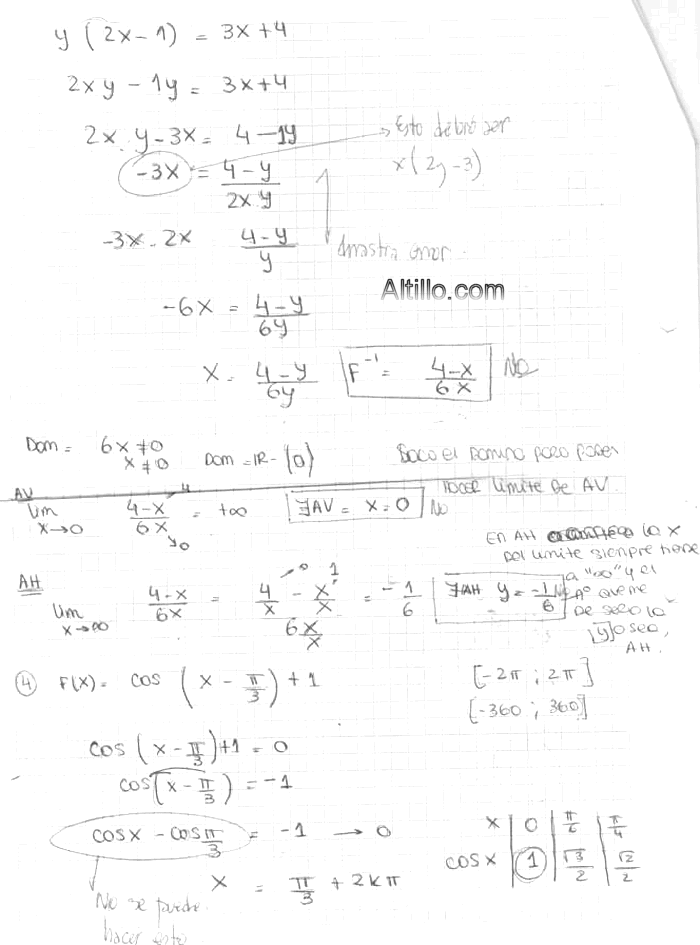 y (2x-1) = 3x+4
2xy - 1y = 3x+4
2x. y-3x = 4-1y → Esto debió ser
x(2y-3)
-3x = (4-y)/(2xy)
-3x - 2x (4-y)/y
Altillo.com
-6x = (4-y)/(6y)
x = (4-y)/(6y) F⁻¹ = (4-x)/(6x) No
Dom = 6x≠0
x≠0 Dom = IR - {0} Saco el Dominio para poder
hacer limite de AV.
AV
lim x→0 (4-x)/(6x) = +∞ ∃AV = x=0 No
4
0
En AH la x
del limite siempre tiende
a "∞" y el
nº que me
de sera la
[y] o sea,
AH.
AH
lim x→∞ (4-x)/(6x) = (4/x - x/x)/(6x/x) = -1/6 ∃AH y = -1/6 No
0 1
④ F(x) = cos (x - π/3) + 1 [-2π ; 2π]
[-360 ; 360]
cos (x - π/3) + 1 = 0
cos (x - π/3) = -1
cosx - cos π/3 = -1 → 0
x | 0 | π/6 | π/4
cosx | 1 | √3/2 | √2/2
x = π/3 + 2kπ
No se puede
hacer esto